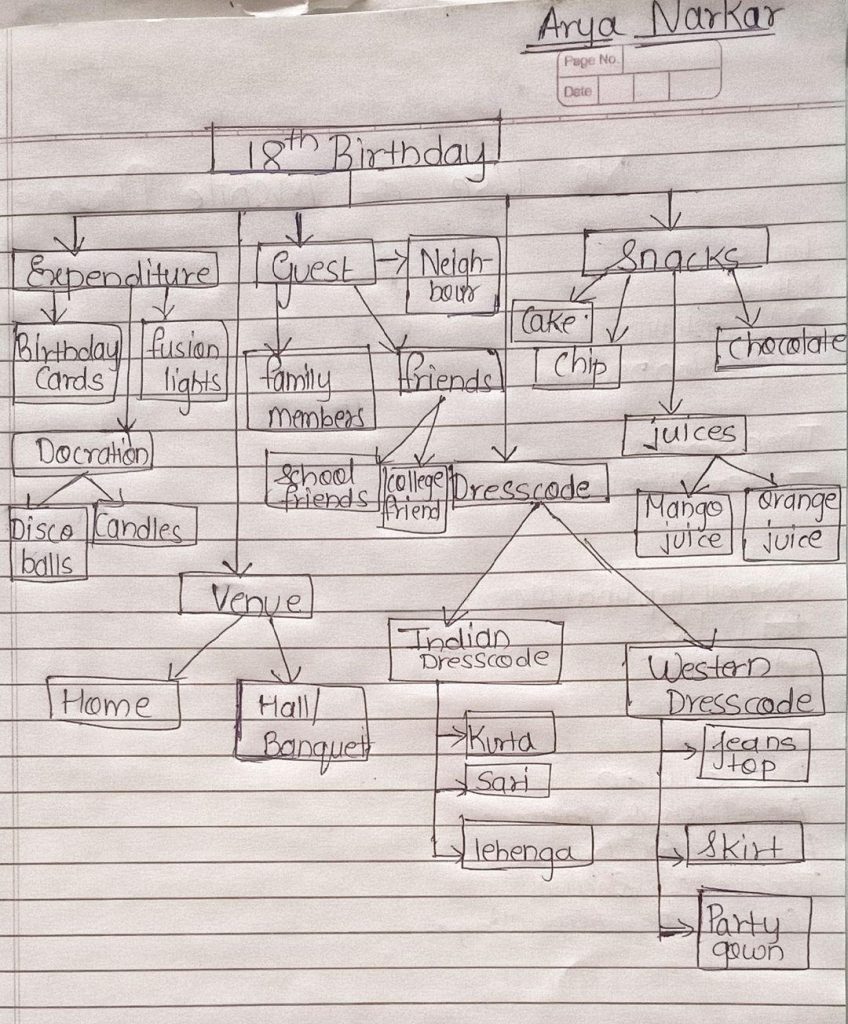 Arya Narkar
Page No.
Date
18th Birthday
Expenditure
Guest
Neigh-
bour
Snacks
Birthday
Cards
fusion
lights
family
members
friends
Cake
Chip
Chocolate
Docration
juices
School
friends
College
friend
Dresscode
Disco
balls
Candles
Mango
juice
Orange
juice
Venue
Home
Hall/
Banquet
Indian
Dresscode
Western
Dresscode
Kurta
Sari
lehenga
Jeans
top
Skirt
Party
gown